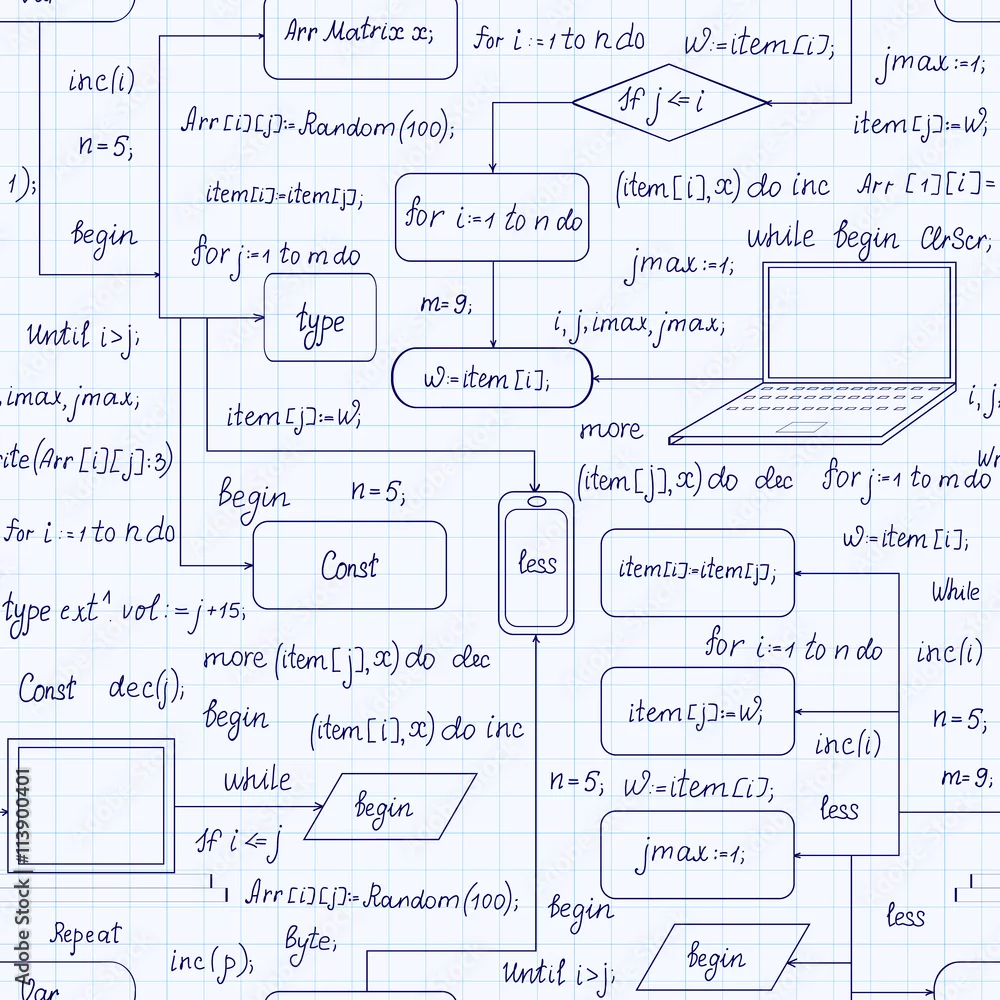 Arr Matrix x;
for i:=1 to n do
w:=item[i];
jmax:=1;
inc(i)
If j <= i
Arr[i][j]:=Random(100);
item[j]:=w;
n=5;
1);
item[i]:=item[j];
(item[i],x) do inc
Arr [1][i]=
for i:=1 to n do
begin
while begin ClrScr;
for j:=1 to m do
jmax:=1;
m=9;
type
i, j, imax, jmax;
Until i>j;
w:=item[i];
, imax, jmax;
i, j,
item[j]:=w;
more
ite(Arr[i][j]:3)
Wr
(item[j],x) do dec
for j:=1 to m do
Begin
n=5;
for i:=1 to n do
w:=item[i];
Const
less
item[i]:=item[j];
While
type ext^ vol:=j+15;
for i:=1 to n do
inc(i)
more (item[j],x) do dec
Const dec(j);
begin
item[j]:=w;
n=5;
(item[i],x) do inc
inc(i)
while
n=5;
w:=item[i];
m=9;
begin
less
If i <= j
jmax:=1;
Arr[i][j]:=Random(100);
begin
less
Repeat
Byte;
inc(p);
Until i>j;
begin
Var
Adobe Stock | #113900401